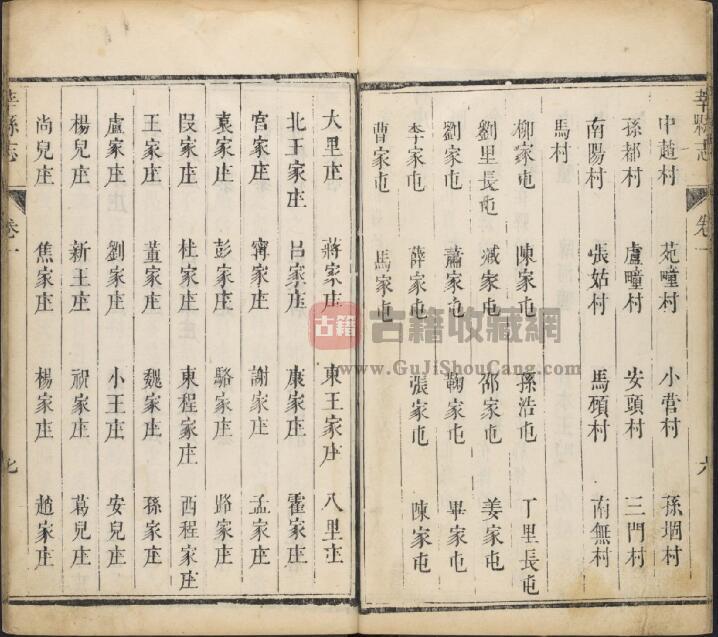 莘縣志 卷一 六
中趙村 苑疃村 小菅村 孫堌村
孫都村 盧疃村 安頭村 三門村
南陽村 張姑村 馬頦村 南無村
馬村
柳家屯 陳家屯 孫浩屯 丁里長屯
劉里長屯 臧家屯 邵家屯 姜家屯
劉家屯 蕭家屯 鞠家屯 畢家屯
李家屯 薛家屯 張家屯 陳家屯
曹家屯 馬家屯
大里庄 蔣家庄 東王家庄 八里庄
北王家庄 呂家庄 康家庄 霍家庄
宮家庄 甯家庄 謝家庄 孟家庄
袁家庄 彭家庄 駱家庄 路家庄
段家庄 杜家庄 東程家庄 西程家庄
王家庄 董家庄 魏家庄 孫家庄
盧家庄 劉家庄 小王庄 安兒庄
楊兒庄 新王庄 祝家庄 葛兒庄
尚兒庄 焦家庄 楊家庄 趙家庄
莘縣志 卷一 七
古籍 古籍收藏網
www.GuJiShouCang.com